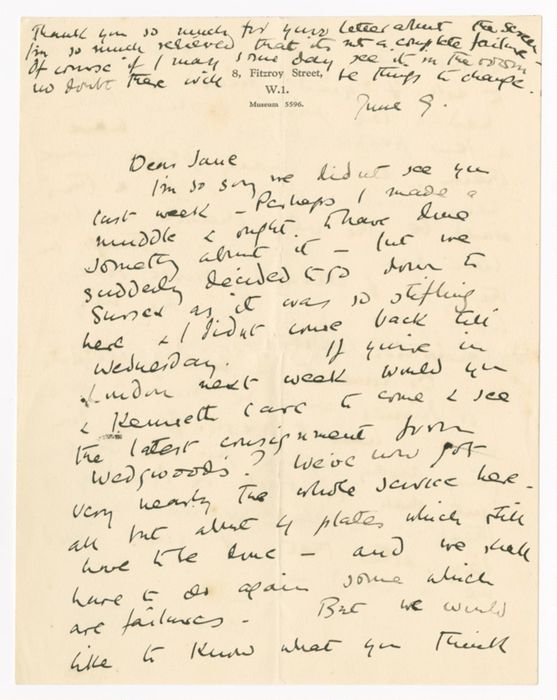 Thank you so much for your letter about the screen
I'm so much relieved that its not a complete failure -
Of course if I may some day see it in the room
no doubt there will be things to change.
8, Fitzroy Street,
W.1.
Museum 5596.
June 9.
Dear Jane
I'm so sorry we didnt see you
last week - Perhaps I made a
muddle & ought to have done
something about it - but we
suddenly decided to go down to
Sussex as it was so stifling
here & I didnt come back till
Wednesday. If you're in
London next week would you
& Kenneth care to come & see
the latest consignment from
Wedgwoods? We've now got
very nearly the whole service here -
all but about 4 plates which still
have to be done - and we shall
have to do again some which
are failures - But we would
like to know what you think